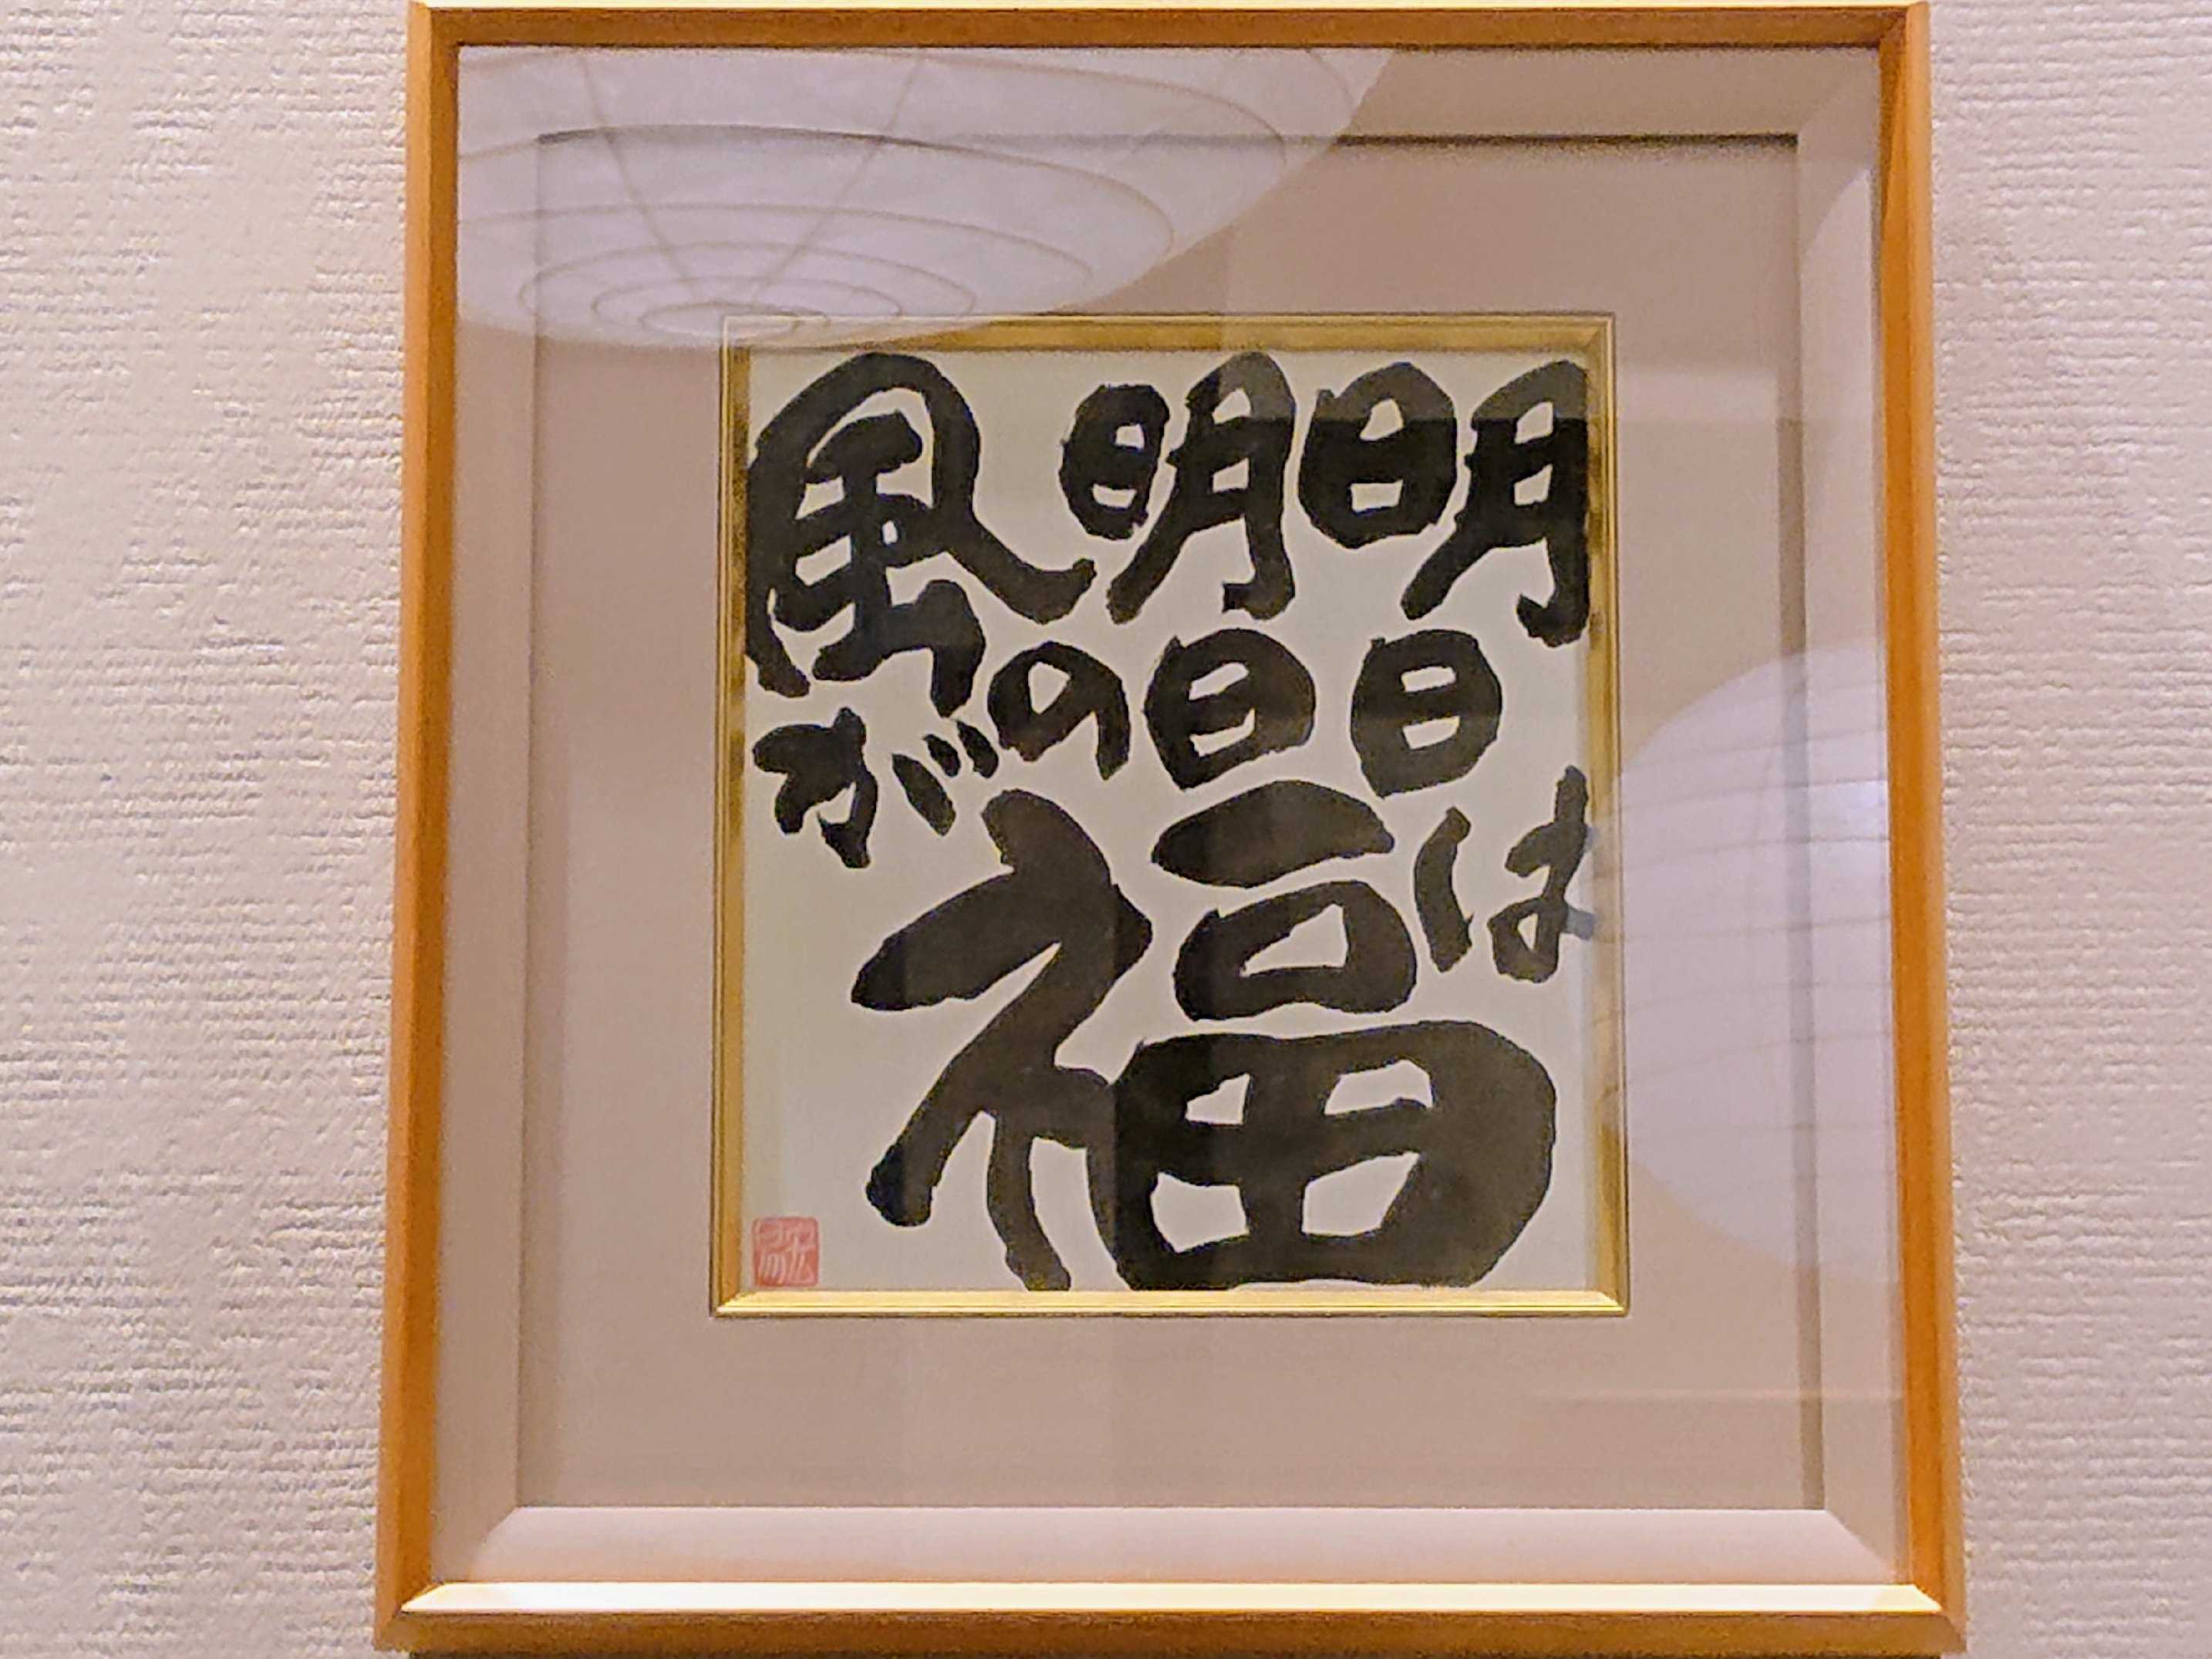 明日は
明日の
風が
福